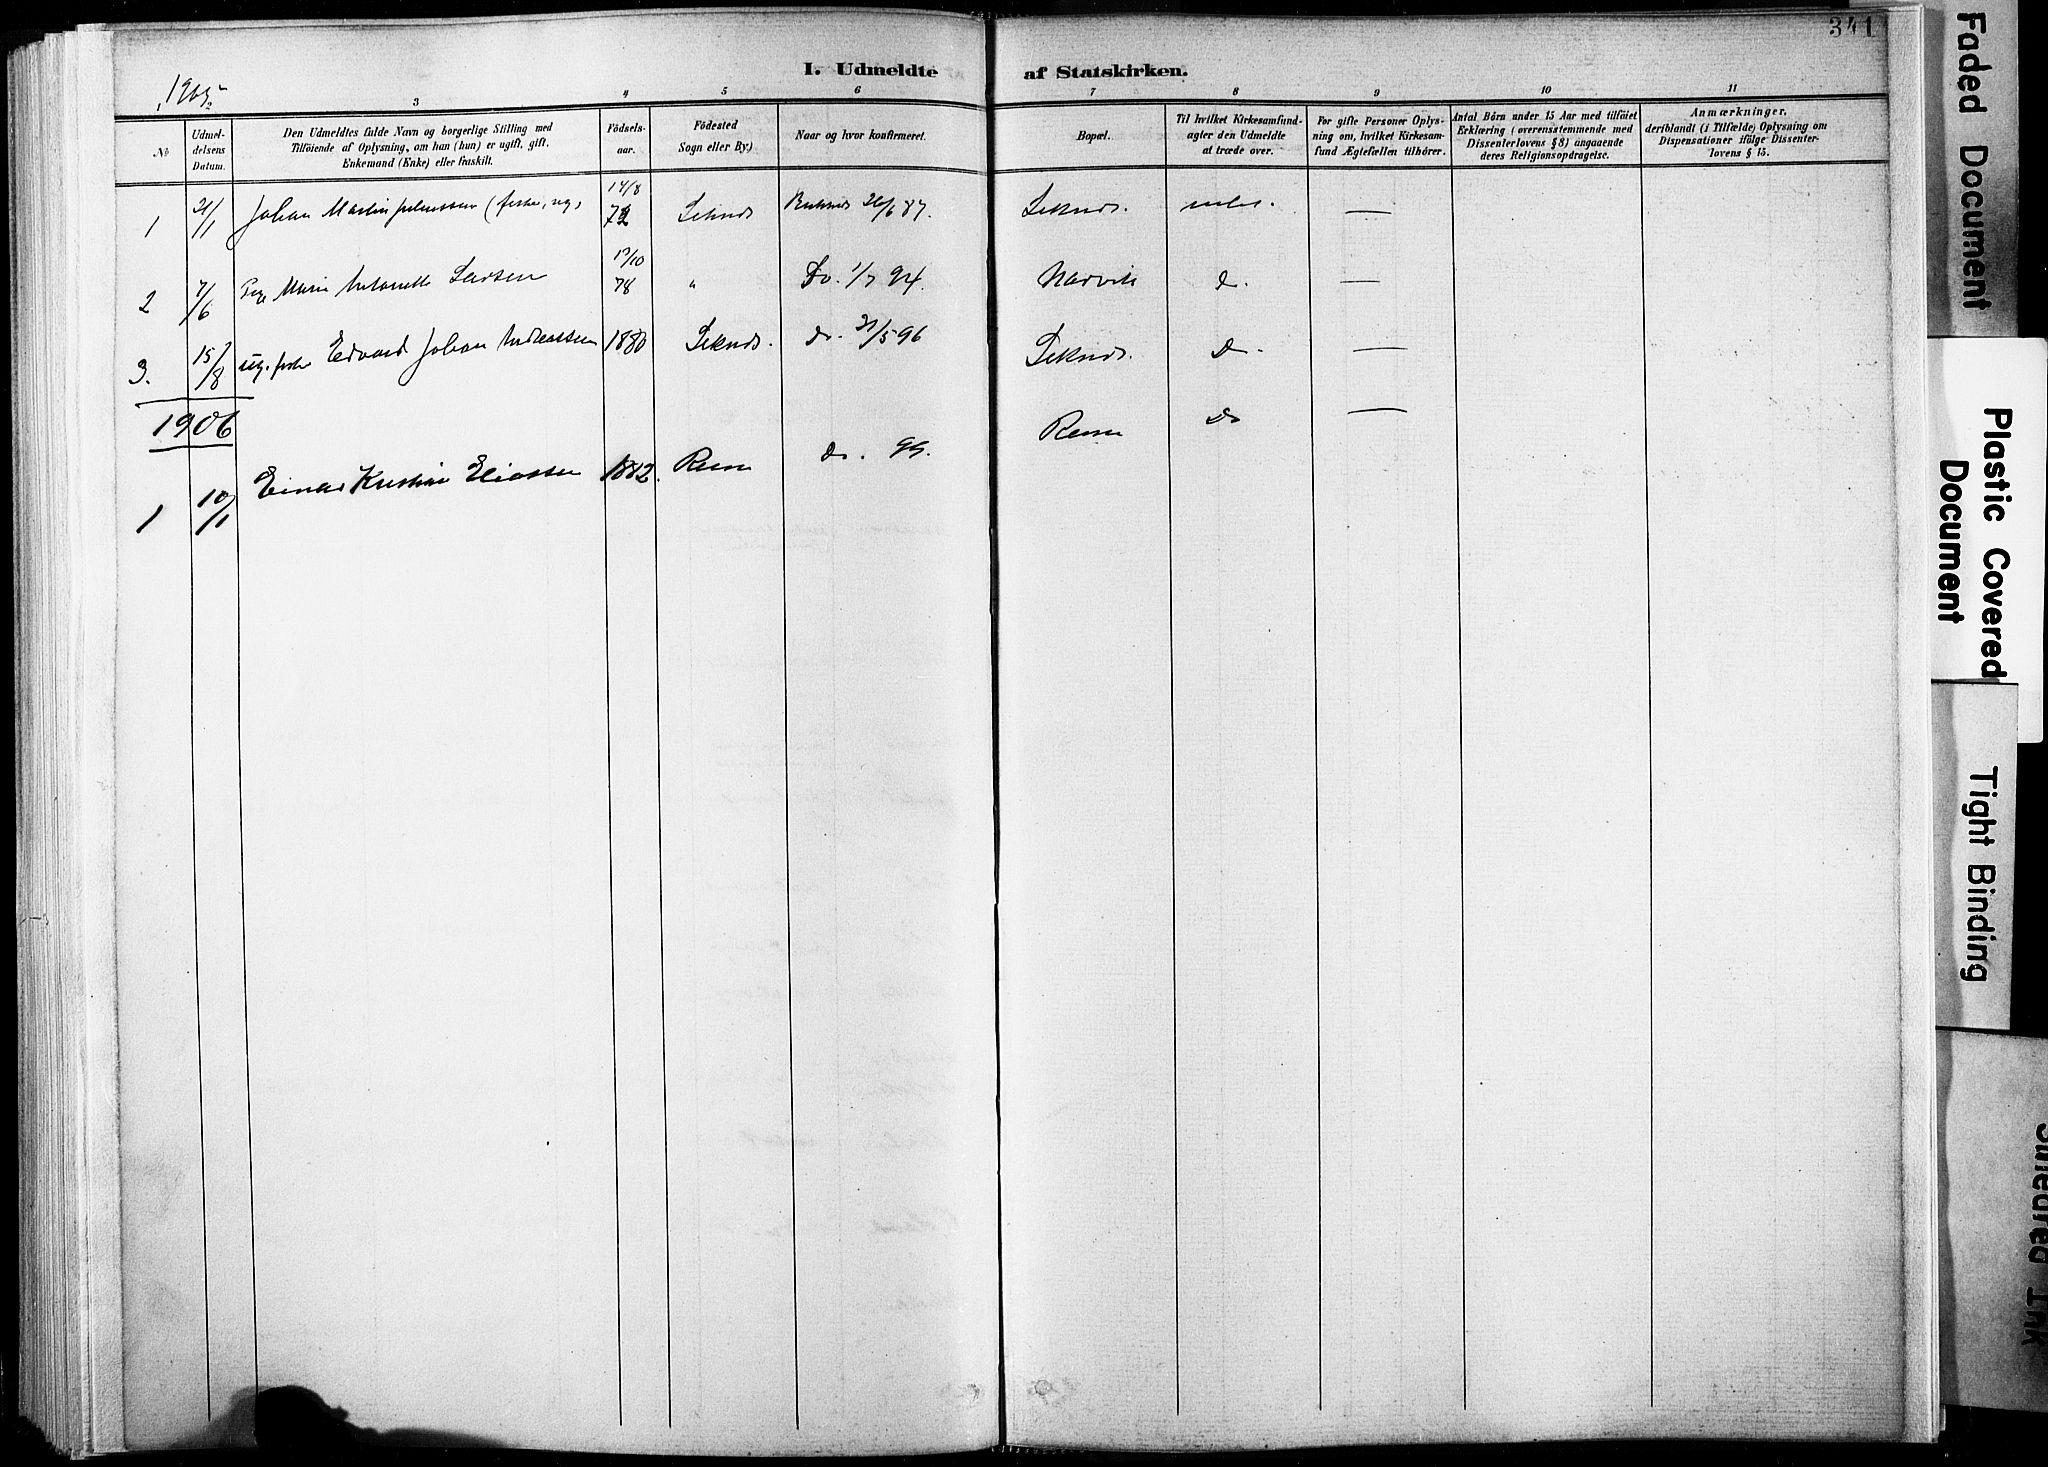 341
I. Udmeldte af Statskirken.
1905
3 4 5 6 7 8 9 10 11
№
Udmel-
delsens
Datum.
Den Udmeldtes fulde Navn og borgerlige Stilling med
Tilføiende af Oplysning, om han (hun) er ugift, gift,
Enkemand (Enke) eller fraskilt.
Födsels-
aar.
Födested
Sogn eller By)
Naar og hvor konfirmeret.
Bopæl.
Til hvilket Kirkesamfund-
agter den Udmeldte
at træde over.
For gifte Personer Oplys-
ning om, hvilket Kirkesam-
fund Ægtefællen tilhörer.
Antal Börn under 15 Aar med tilföiet
Erklæring (overensstemmende med
Dissenterlovens §8) angaaende
deres Religionsopdragelse.
Anmærkninger,
deriblandt (i Tilfælde) Oplysning om
Dispensationer ifölge Dissenter-
lovens § 15.
1 21/1 Johan Martin (fisker, ug. 14/8 72 26/6 87. —
2 7/6 Pige Marie Larsen 78 " Do. 1/7 94. Narvik d. —
3. 15/8 ug. fisker Edvard Johan Andreassen 1880 do. 31/5 96 D. —
1906
1 10/1 Einar Kristian Eliassen 1882. do. Do —
Faded Document
Plastic Covered
Document
Tight Binding
Smeared Ink